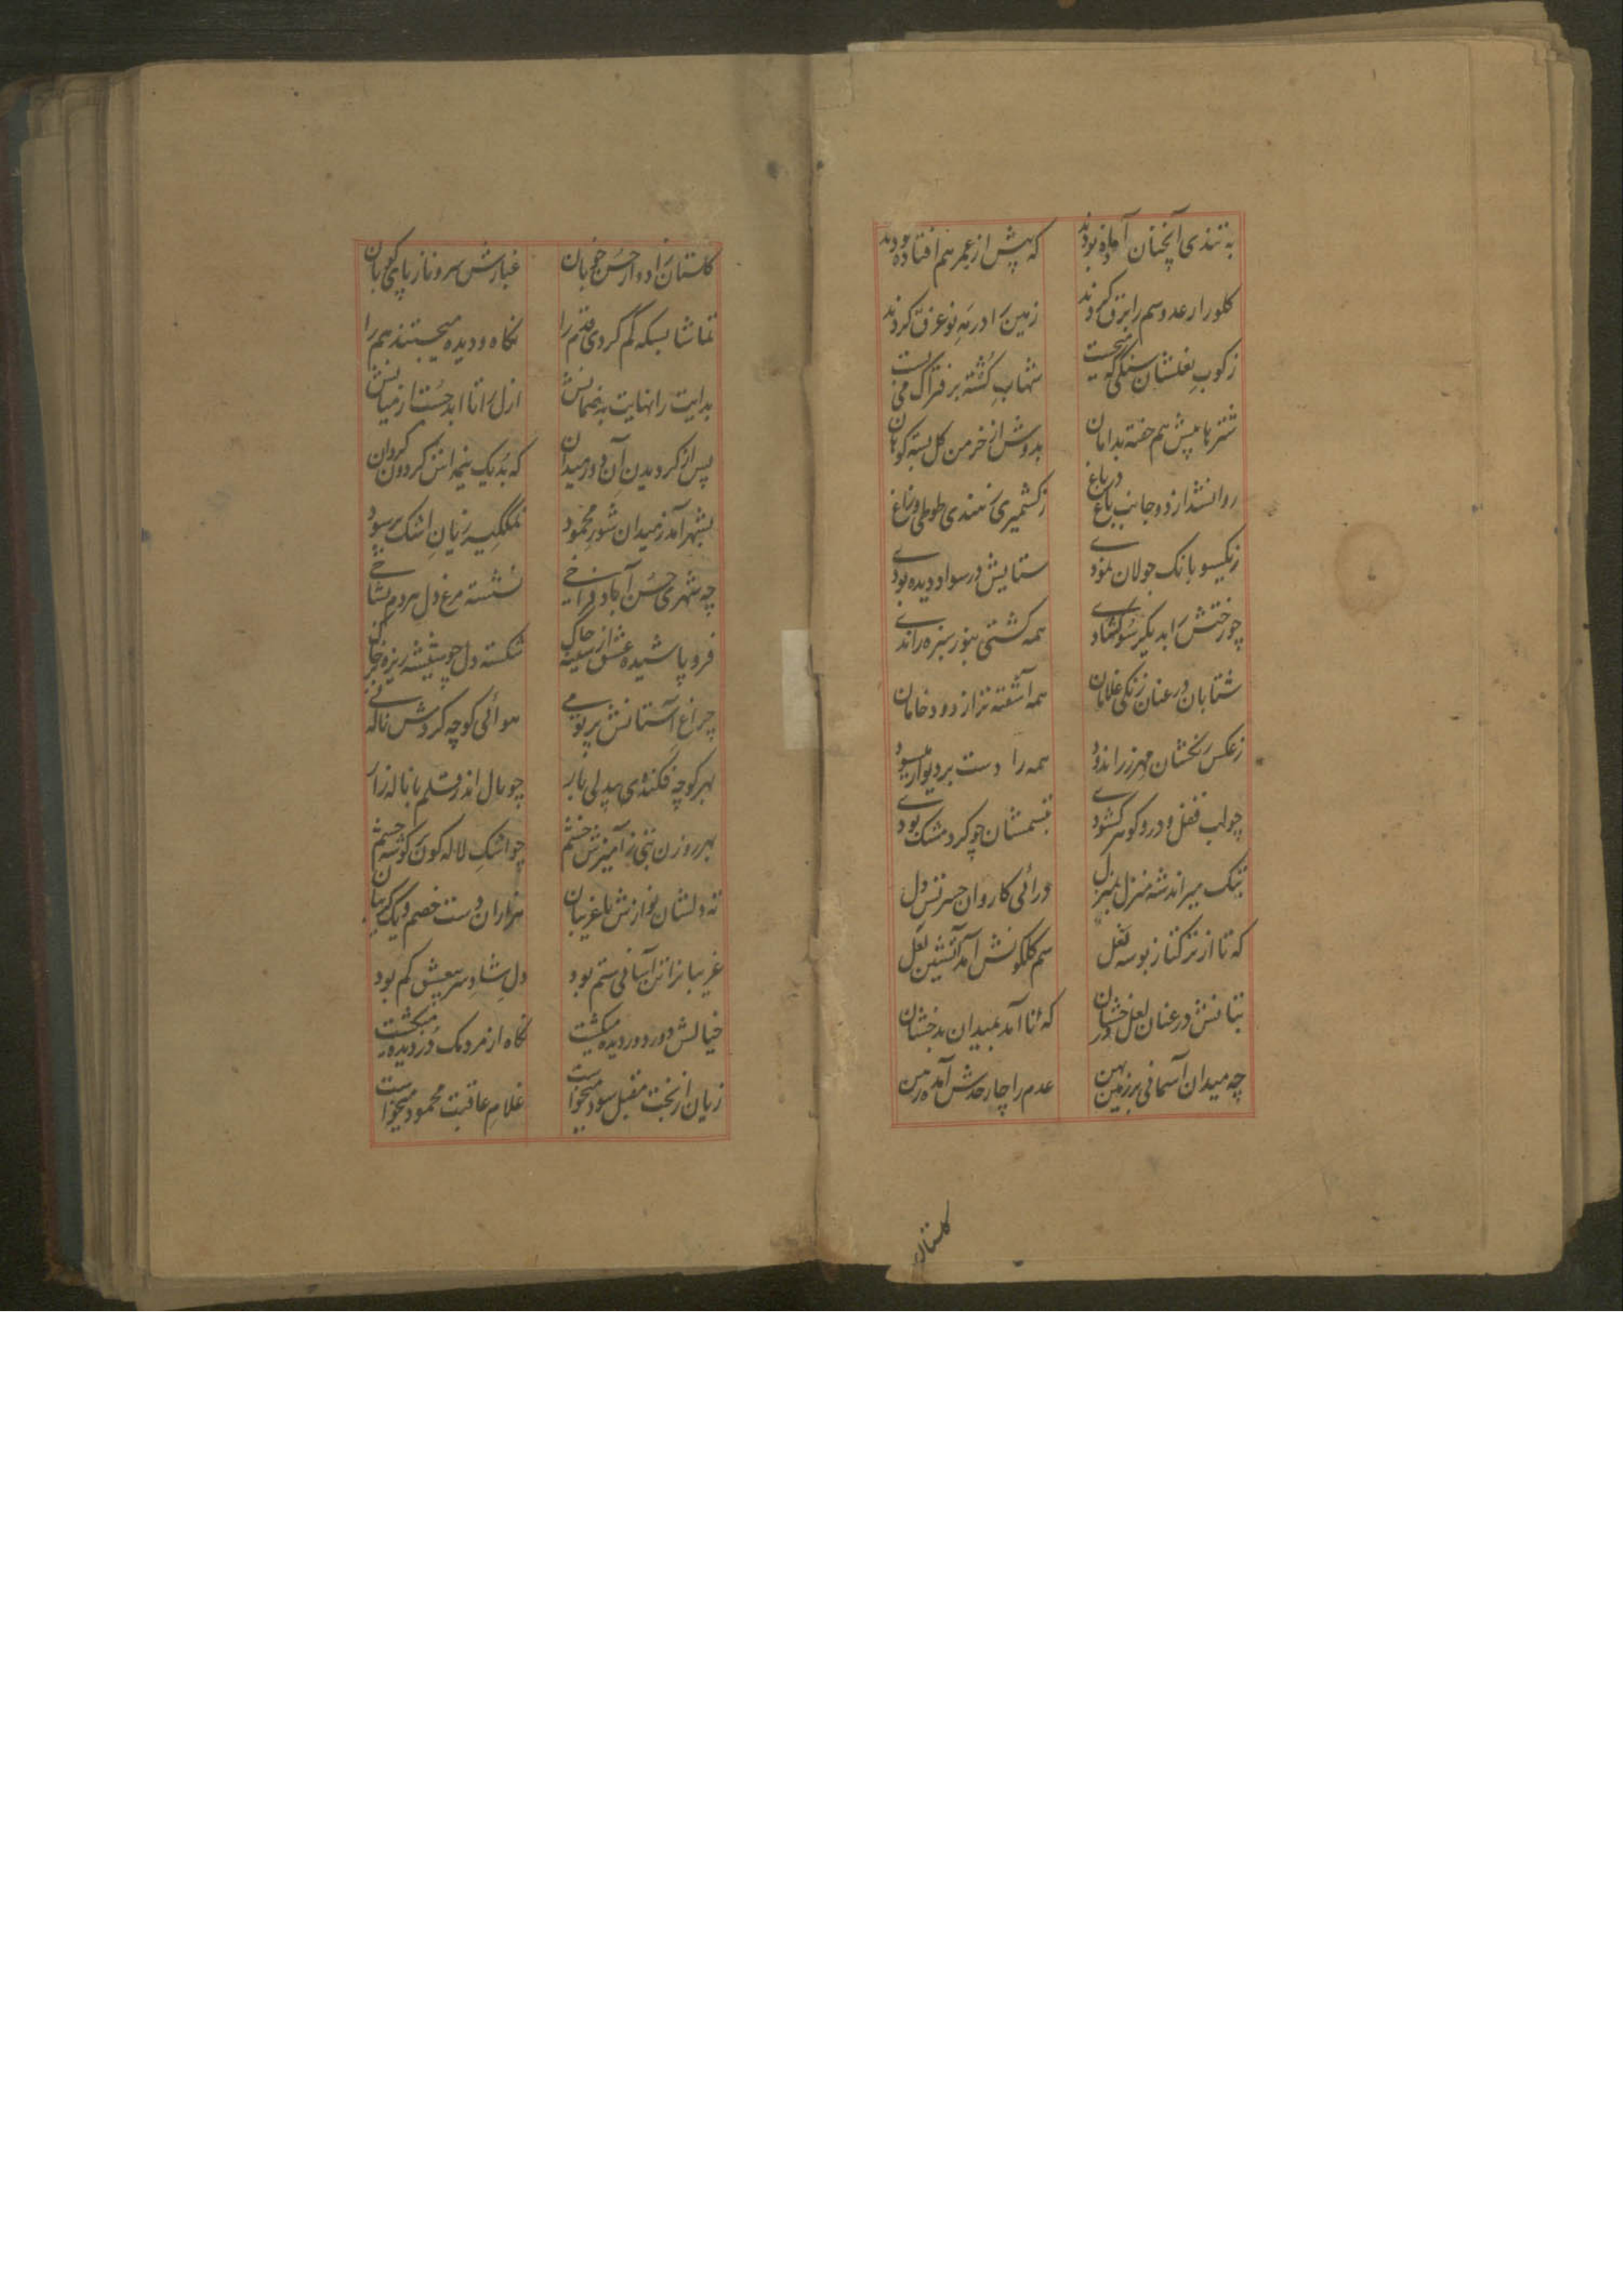 به تندی آنچنان آماده بودند که پیش از عمر هم افتاده بودند
کلو را رعد و سم را برق کردند زمین را در مه نو غرق کردند
ز کوب نعلشان سنگی که میجست شهاب کشته بر فتراک می بست
شتر با پیش هم خفته بدامان بدوش از خرمن گل بسته کوهان
روانشد از دو جانب باغ در باغ ز کشمیری ز هندی طوطی و زاغ
ز یکسو بانک جولان نمودی ستایش در سواد دیده بودی
چو رختش را بدیگر سو کشادی همه کشتی بنور سبزه راندی
شتابان در عنان زنگی غلامان همه آشفته تر از دود خامان
ز عکس رخشان مهر زر اندود همه را دست بر دیوار میسود
چو لب قفل و در و گوهر کشودی تبسمشان چو کرد مشک بودی
بتنک میراند شه منزل بمنزل درائی کاروان حسرتش دل
که تا از ترکتاز بوسه لعل سم گلگونش آمد آتشین نعل
بتانش در عنان لعل درخشان که تا آمد بمیدان بدخشان
چه میدان آسمانی بر زمین پهن عدم را چار حدش آمده رهن
گلستان
گلستان زاده وار حسن خوبان غبارش سرو ناز پای کوبان
تماشا بسکه گم کردی قدم را نگاه و دیده میجستند هم را
بدایت را نهایت به ضمانش ازل را تا ابد جست از میانش
پس از گردیدن آن دور میدان که بد یک نیمه اش گردون گردان
بشهر آمد ز میدان شور محمود نمکگیر زیان اشک پر سود
چه شهری حسن آباد فراخی نشسته مرغ دل هر دم بشاخی
فرو پاشیده عشق از سینه چاک شکسته دل چو شیشه ریزه خاک
چراغ آستانش پر تو می هوائی کوچه گردش ناله نی
بهر کوچه فکندی بیدلی بار چو مال اندر قلم با ناله زار
بهر روزن بتی ز آمیزش خشم چو اشک لاله گون گوشه چشم
نه دلشان نوازش با غریبان هزاران دست خصم و یک گریبان
غریبانرا تن آسانی ستم بود دل شاد سر عیش کم بود
خیالش دور دور دیده میگشت نگاه از مردمک دزدیده میگشت
زیان از بخت مقبل سود میخواست غلام عاقبت محمود میخواست